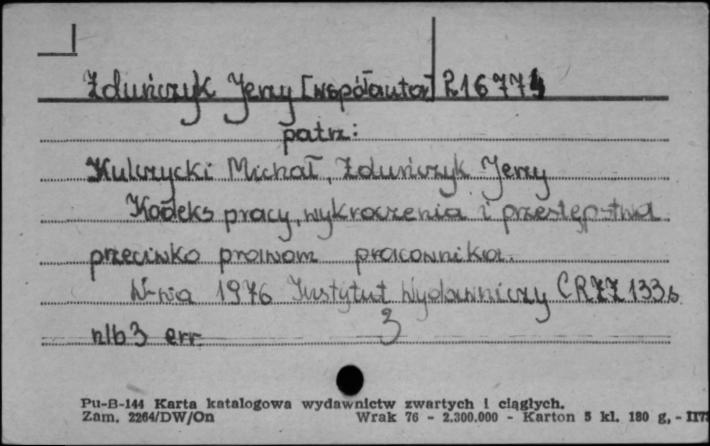 Żduńczyk Jerzy [współautor] R16774
patrz:
Kulczycki Michał, Żduńczyk Jerzy
Kodeks pracy, wykroczenia i przestępstwa
przeciwko prawom pracownika.
W-wa 1976 Instytut Wydawniczy CRZZ 133 s
nlb 3 err. 3
Pu-B-144 Karta katalogowa wydawnictw zwartych i ciągłych.
Zam. 2264/DW/On Wrak 76 - 2.300.000 - Karton 5 kl. 180 g, -